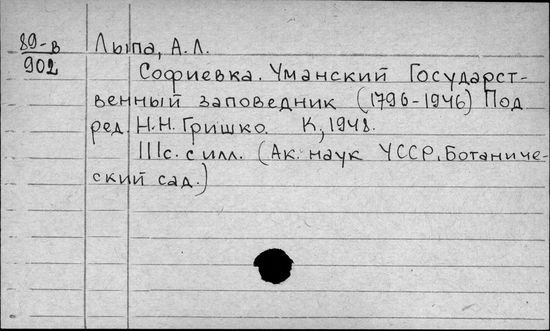 89-в Лыпа, А.Л.
902
Софиевка. Уманский Государст-
венный заповедник (1796-1946) Под
ред. Н.Н. Гришко. К, 1948.
111с. с илл. (Ак. наук УССР. Ботаниче-
ский сад.)